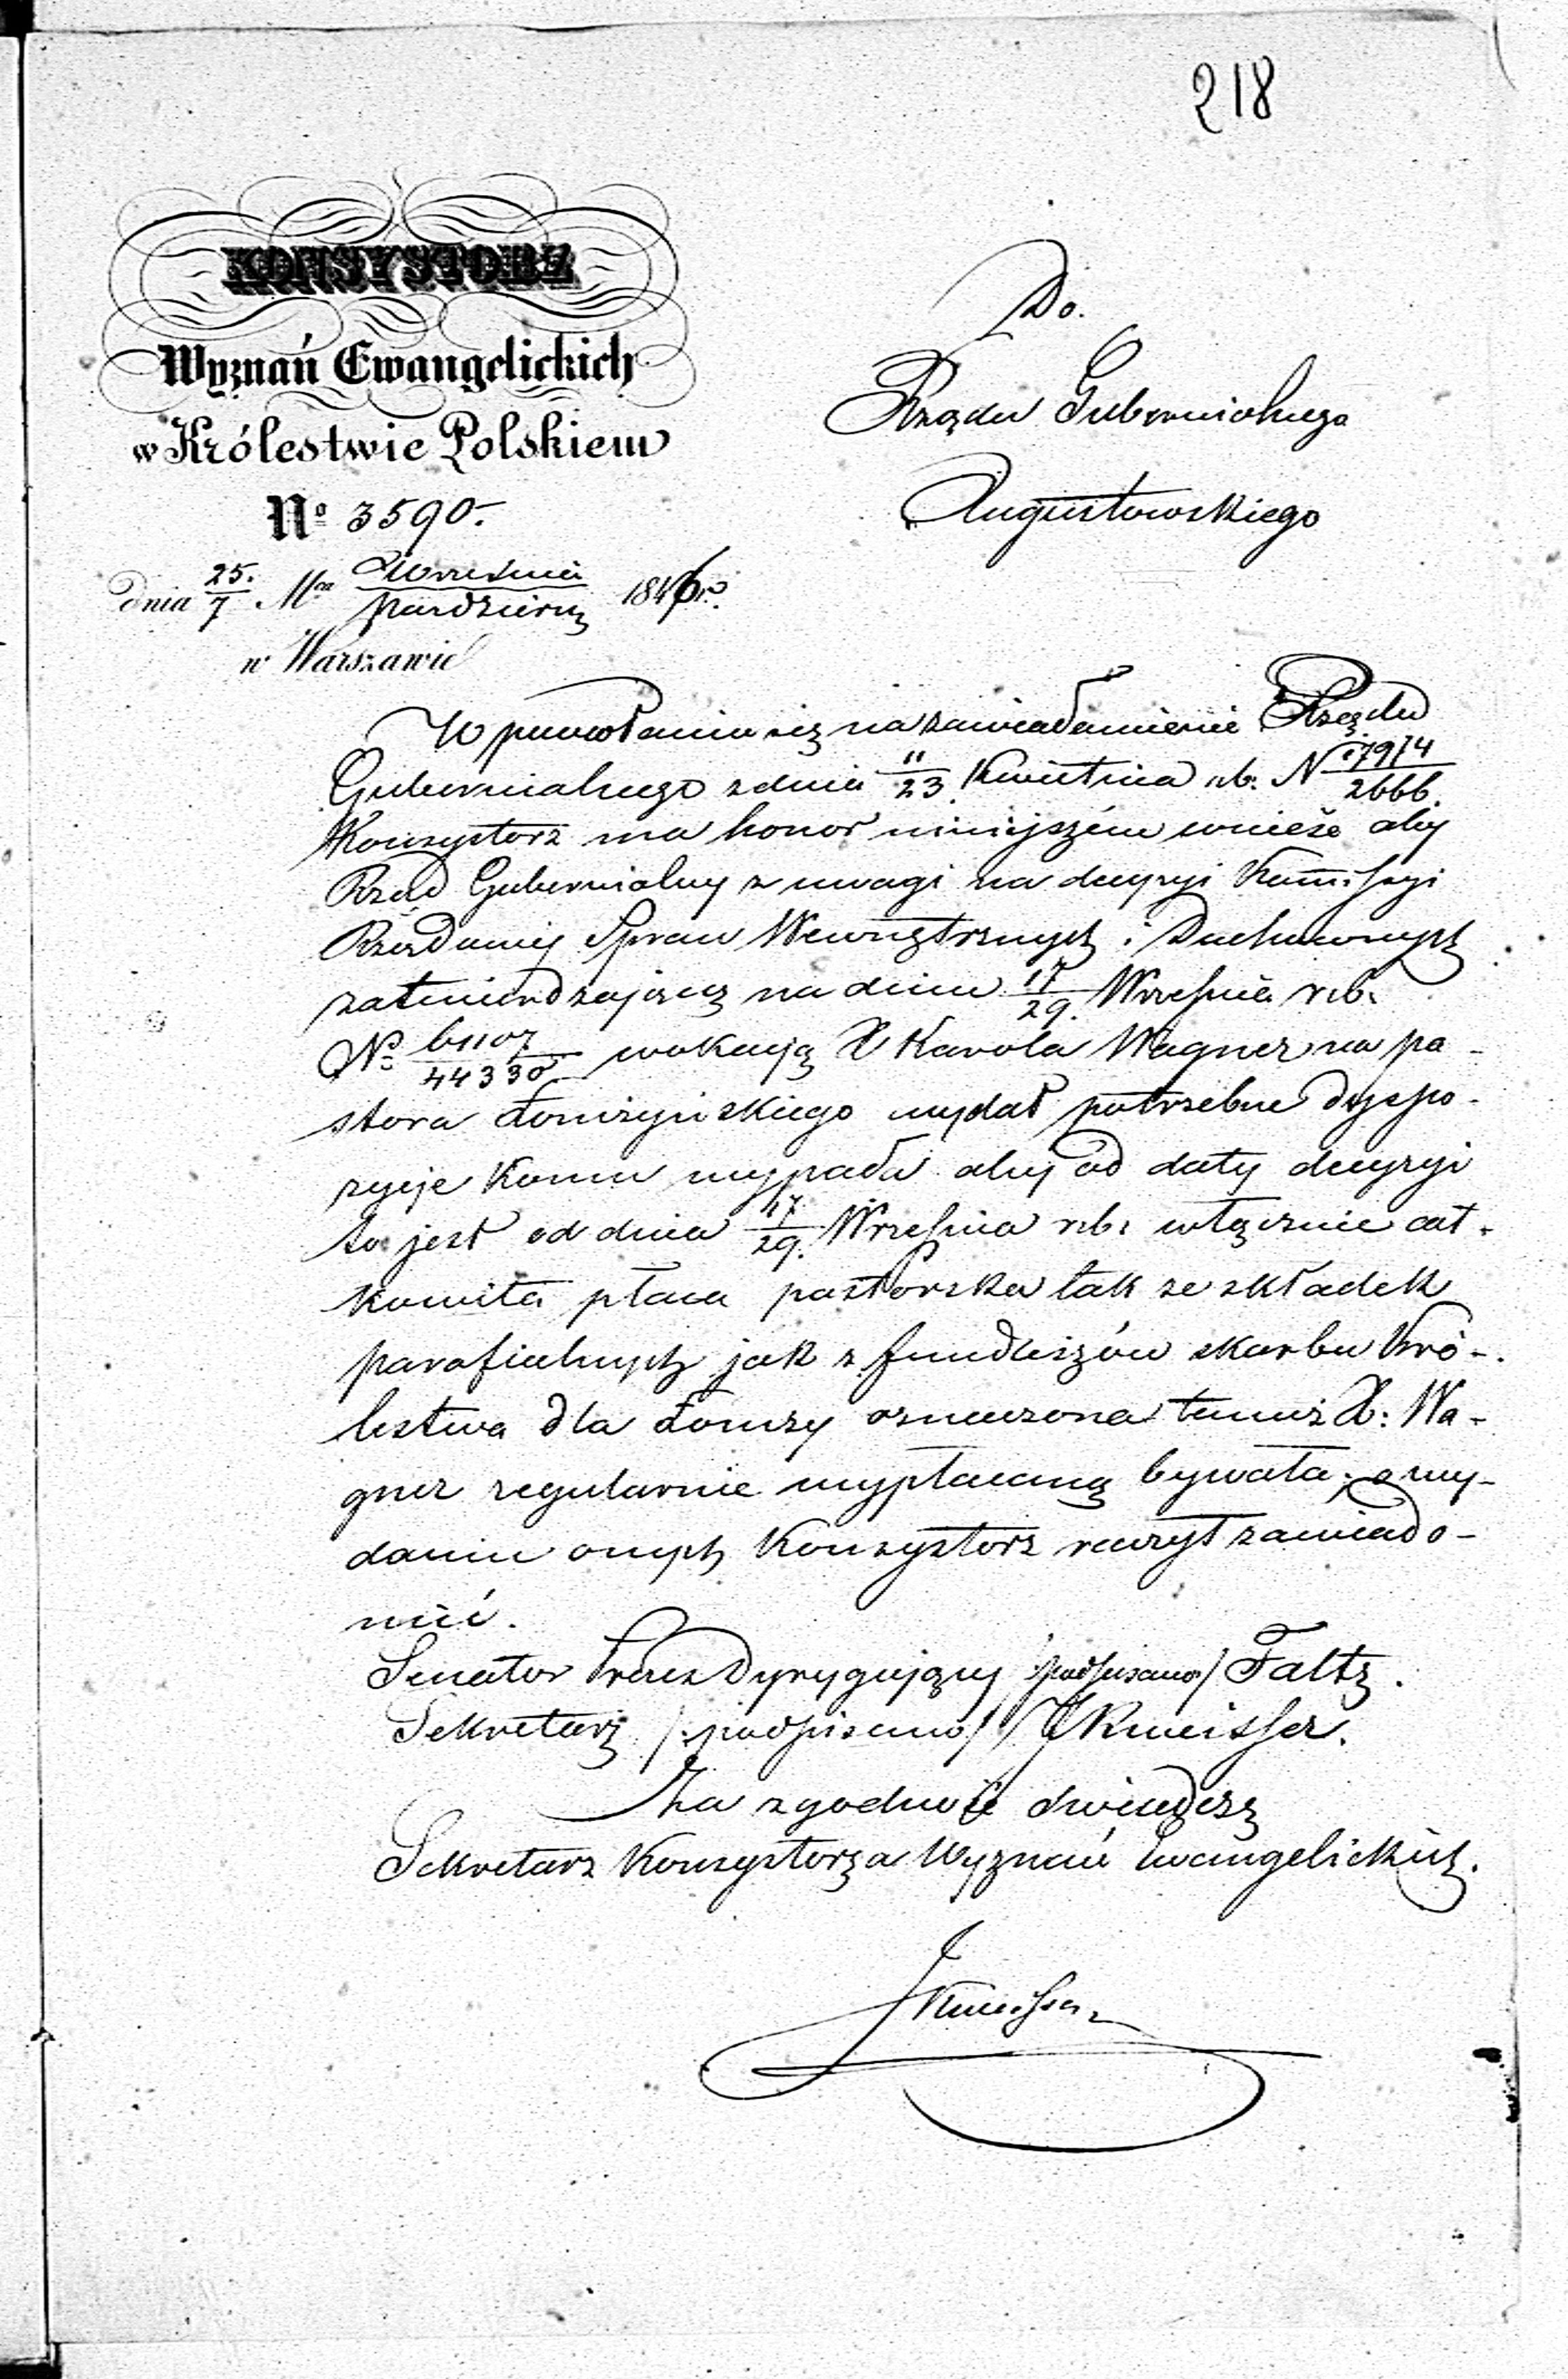 218
KONSYSTORZ
Wyznań Ewangelickich
w Królestwie Polskiem
No 3590.
dnia 25./7 Mca Września/Paździer. 1846 r.
w Warszawie
Do
Rządu Gubernialnego
Augustowskiego
W powołaniu się na zawiadomienie Rządu
Gubernialnego z dnia 11/23 Kwietnia rb. N 17974/2666.
Konsystorz ma honor niniejszém wnieść aby
Rząd Gubernialny z uwagi na decyzyi Kommissyi
Rządowej Spraw Wewnętrznych i Duchownych
zatwierdzającej na dniu 17/29. Września rb.
No 61107/44330 wokacyą X Karola Wagner na pa-
stora Łomżyńskiego wydał potrzebne dyspo-
zycje komu wypada aby od daty decyzyi
to jest od dnia 17/29. Września rb. włącznie cał-
kowita płaca pastorska tak ze składek
parafialnych jak z funduszów skarbu Kró-
lestwa dla Łomży oznaczona temuż X: Wa-
gner regularnie wypłacaną bywała; o wy-
daniu onych Konsystorz raczył zawiado-
mić.
Senator Prezes Dyrygujący /podpisano/ Faltz.
Sekretarz /podpisano/ J Kmeisser.
Za zgodność świadczę
Sekretarz Konsystorza Wyznań Ewangelickich.